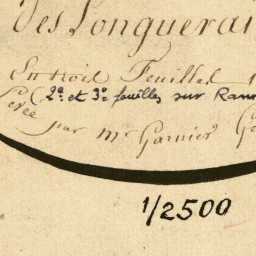 des Longuerai
En trois Feuilles 1
(2e. et 3e. feuilles sur Rane
Levée par Mr. Garnier Gé
1/2500